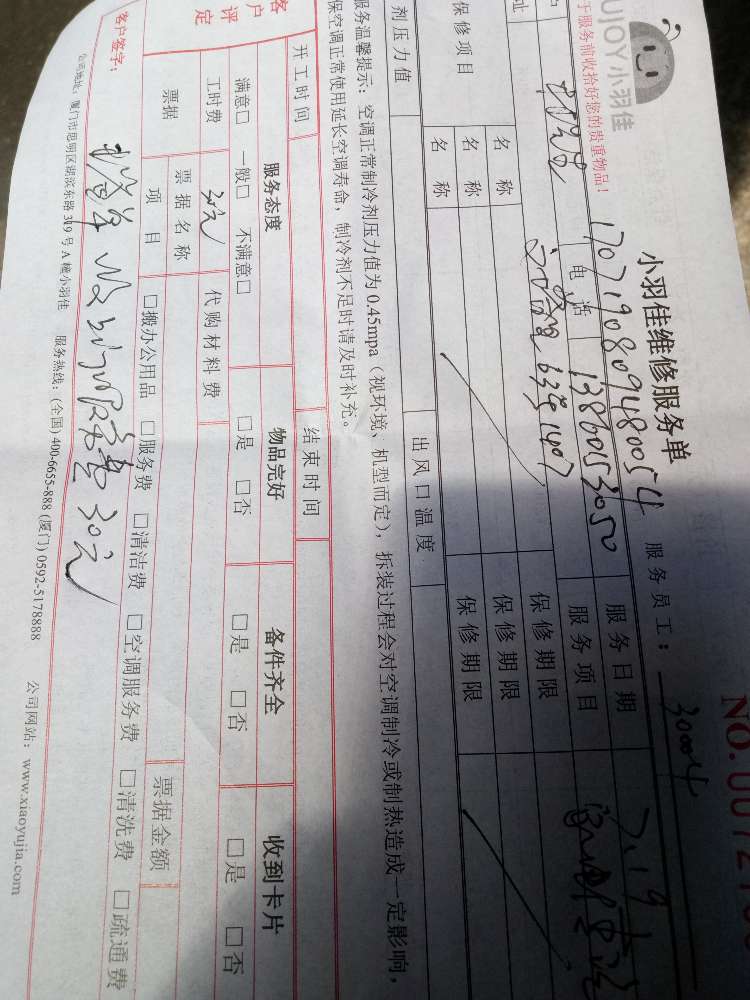 UJOY小羽佳
于服务前收拾好您的贵重物品!
小羽佳维修服务单
NO.
1707190809480054 服务员工: 30004
电话 13860153050 服务日期 7.19
址 服务项目
名称 保修期限
保修项目 名称 保修期限
名称 保修期限
剂压力值 出风口温度
服务温馨提示: 空调正常制冷剂压力值为0.45mpa(视环境、机型而定), 拆装过程会对空调制冷或制热造成一定影响,
保空调正常使用延长空调寿命, 制冷剂不足时请及时补充。
开工时间 结束时间
客户评定 服务态度 物品完好 备件齐全 收到卡片
满意□ 一般□ 不满意□ □是 □否 □是 □否 □是 □否
工时费 30元 代购材料费
票据 票据名称 票据金额
项目 □搬办公用品 □服务费 □清洁费 □空调服务费 □清洗费 □疏通费
客户签字: 30元
公司地址: 厦门市思明区湖滨东路319号A幢小羽佳 服务热线: (全国) 400-6655-888 (厦门) 0592-5178888 公司网站: www.xiaoyujia.com